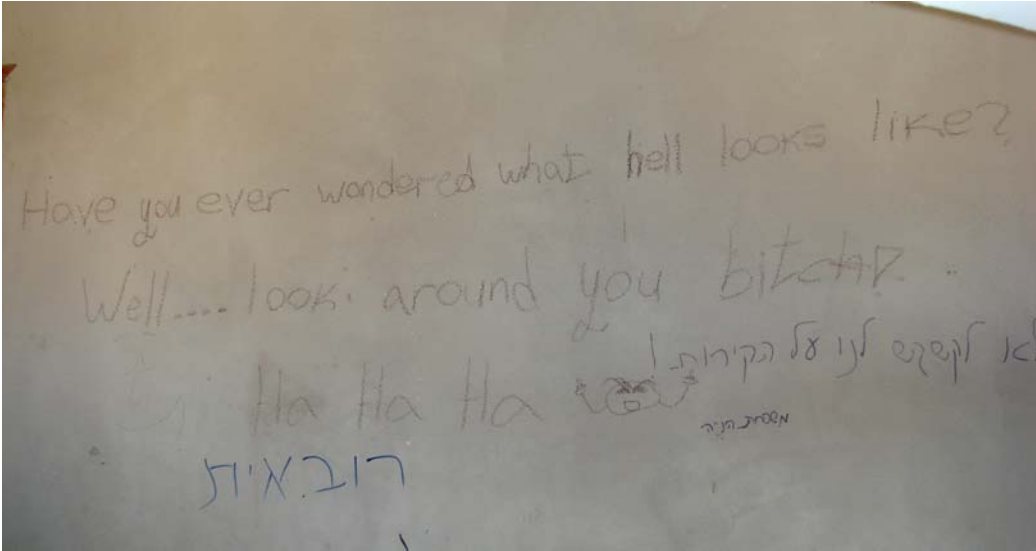 Have you ever wondered what hell looks like?
Well.... look around you bitch? ..
לא לקשקש לנו על הקירות!
Ha Ha Ha
משפחת הניה
רובאית